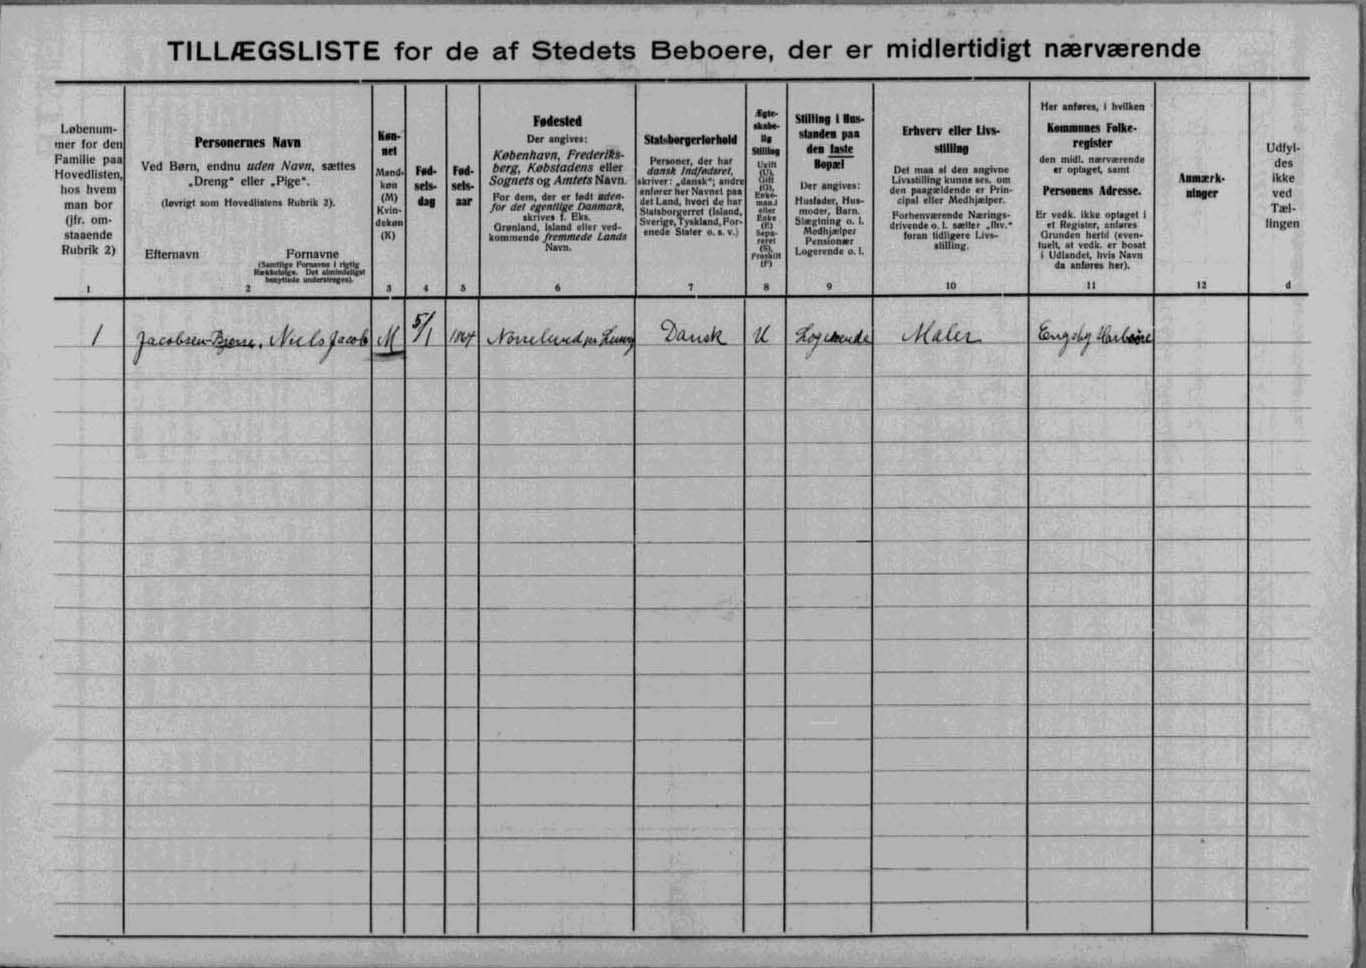 TILLÆGSLISTE for de af Stedets Beboere, der er midlertidigt nærværende
Løbenum-
mer for den
Familie paa
Hovedlisten,
hos hvem
man bor
(jfr. om-
staaende
Rubrik 2)
1
Personernes Navn
Ved Børn, endnu uden Navn, sættes
„Dreng“ eller „Pige“.
(Iøvrigt som Hovedlistens Rubrik 2).
Efternavn Fornavne
(Samtlige Fornavne i rigtig
Rækkefølge. Det almindeligst
benyttede understreges).
2
Køn-
net
Mand-
køn
(M)
Kvin-
dekøn
(K)
3
Fød-
sels-
dag
4
Fød-
sels-
aar
5
Fødested
Der angives:
København, Frederiks-
berg, Købstadens eller
Sognets og Amtets Navn.
For dem, der er født uden-
for det egentlige Danmark,
skrives f. Eks.
Grønland, Island eller ved-
kommende fremmede Lands
Navn.
6
Statsborgerforhold
Personer, der har
dansk Indfødsret,
skriver: „dansk“; andre
anfører her Navnet paa
det Land, hvori de har
Statsborgerret (Island,
Sverige, Tyskland, For-
enede Stater o. s. v.)
7
Ægte-
skabe-
lig
Stilling
Ugift
(U),
Gift
(G),
Enke-
mand
eller
Enke
(E)
Sepa-
reret
(S),
Fraskilt
(F)
8
Stilling i Hus-
standen paa
den faste
Bopæl
Der angives:
Husfader, Hus-
moder, Barn.
Slægtning o. l.
Medhjælper
Pensionær
Logerende o. l.
9
Erhverv eller Livs-
stilling
Det maa af den angivne
Livsstilling kunne ses, om
den paagældende er Prin-
cipal eller Medhjælper.
Forhenværende Nærings-
drivende o. l. sætter „fhv.“
foran tidligere Livs-
stilling.
10
Her anføres, i hvilken
Kommunes Folke-
register
den midl. nærværende
er optaget, samt
Personens Adresse.
Er vedk. ikke optaget i
et Register, anføres
Grunden hertil (even-
tuelt, at vedk. er bosat
i Udlandet, hvis Navn
da anføres her).
11
Anmærk-
ninger
12
Udfyl-
des
ikke
ved
Tæl-
lingen
d
1 Jacobsen-Bjerre, Niels Jacob M 5/1 1864 Nørrelund pr Lemvig Dansk U Logerende Maler Engbjerg Harboøre